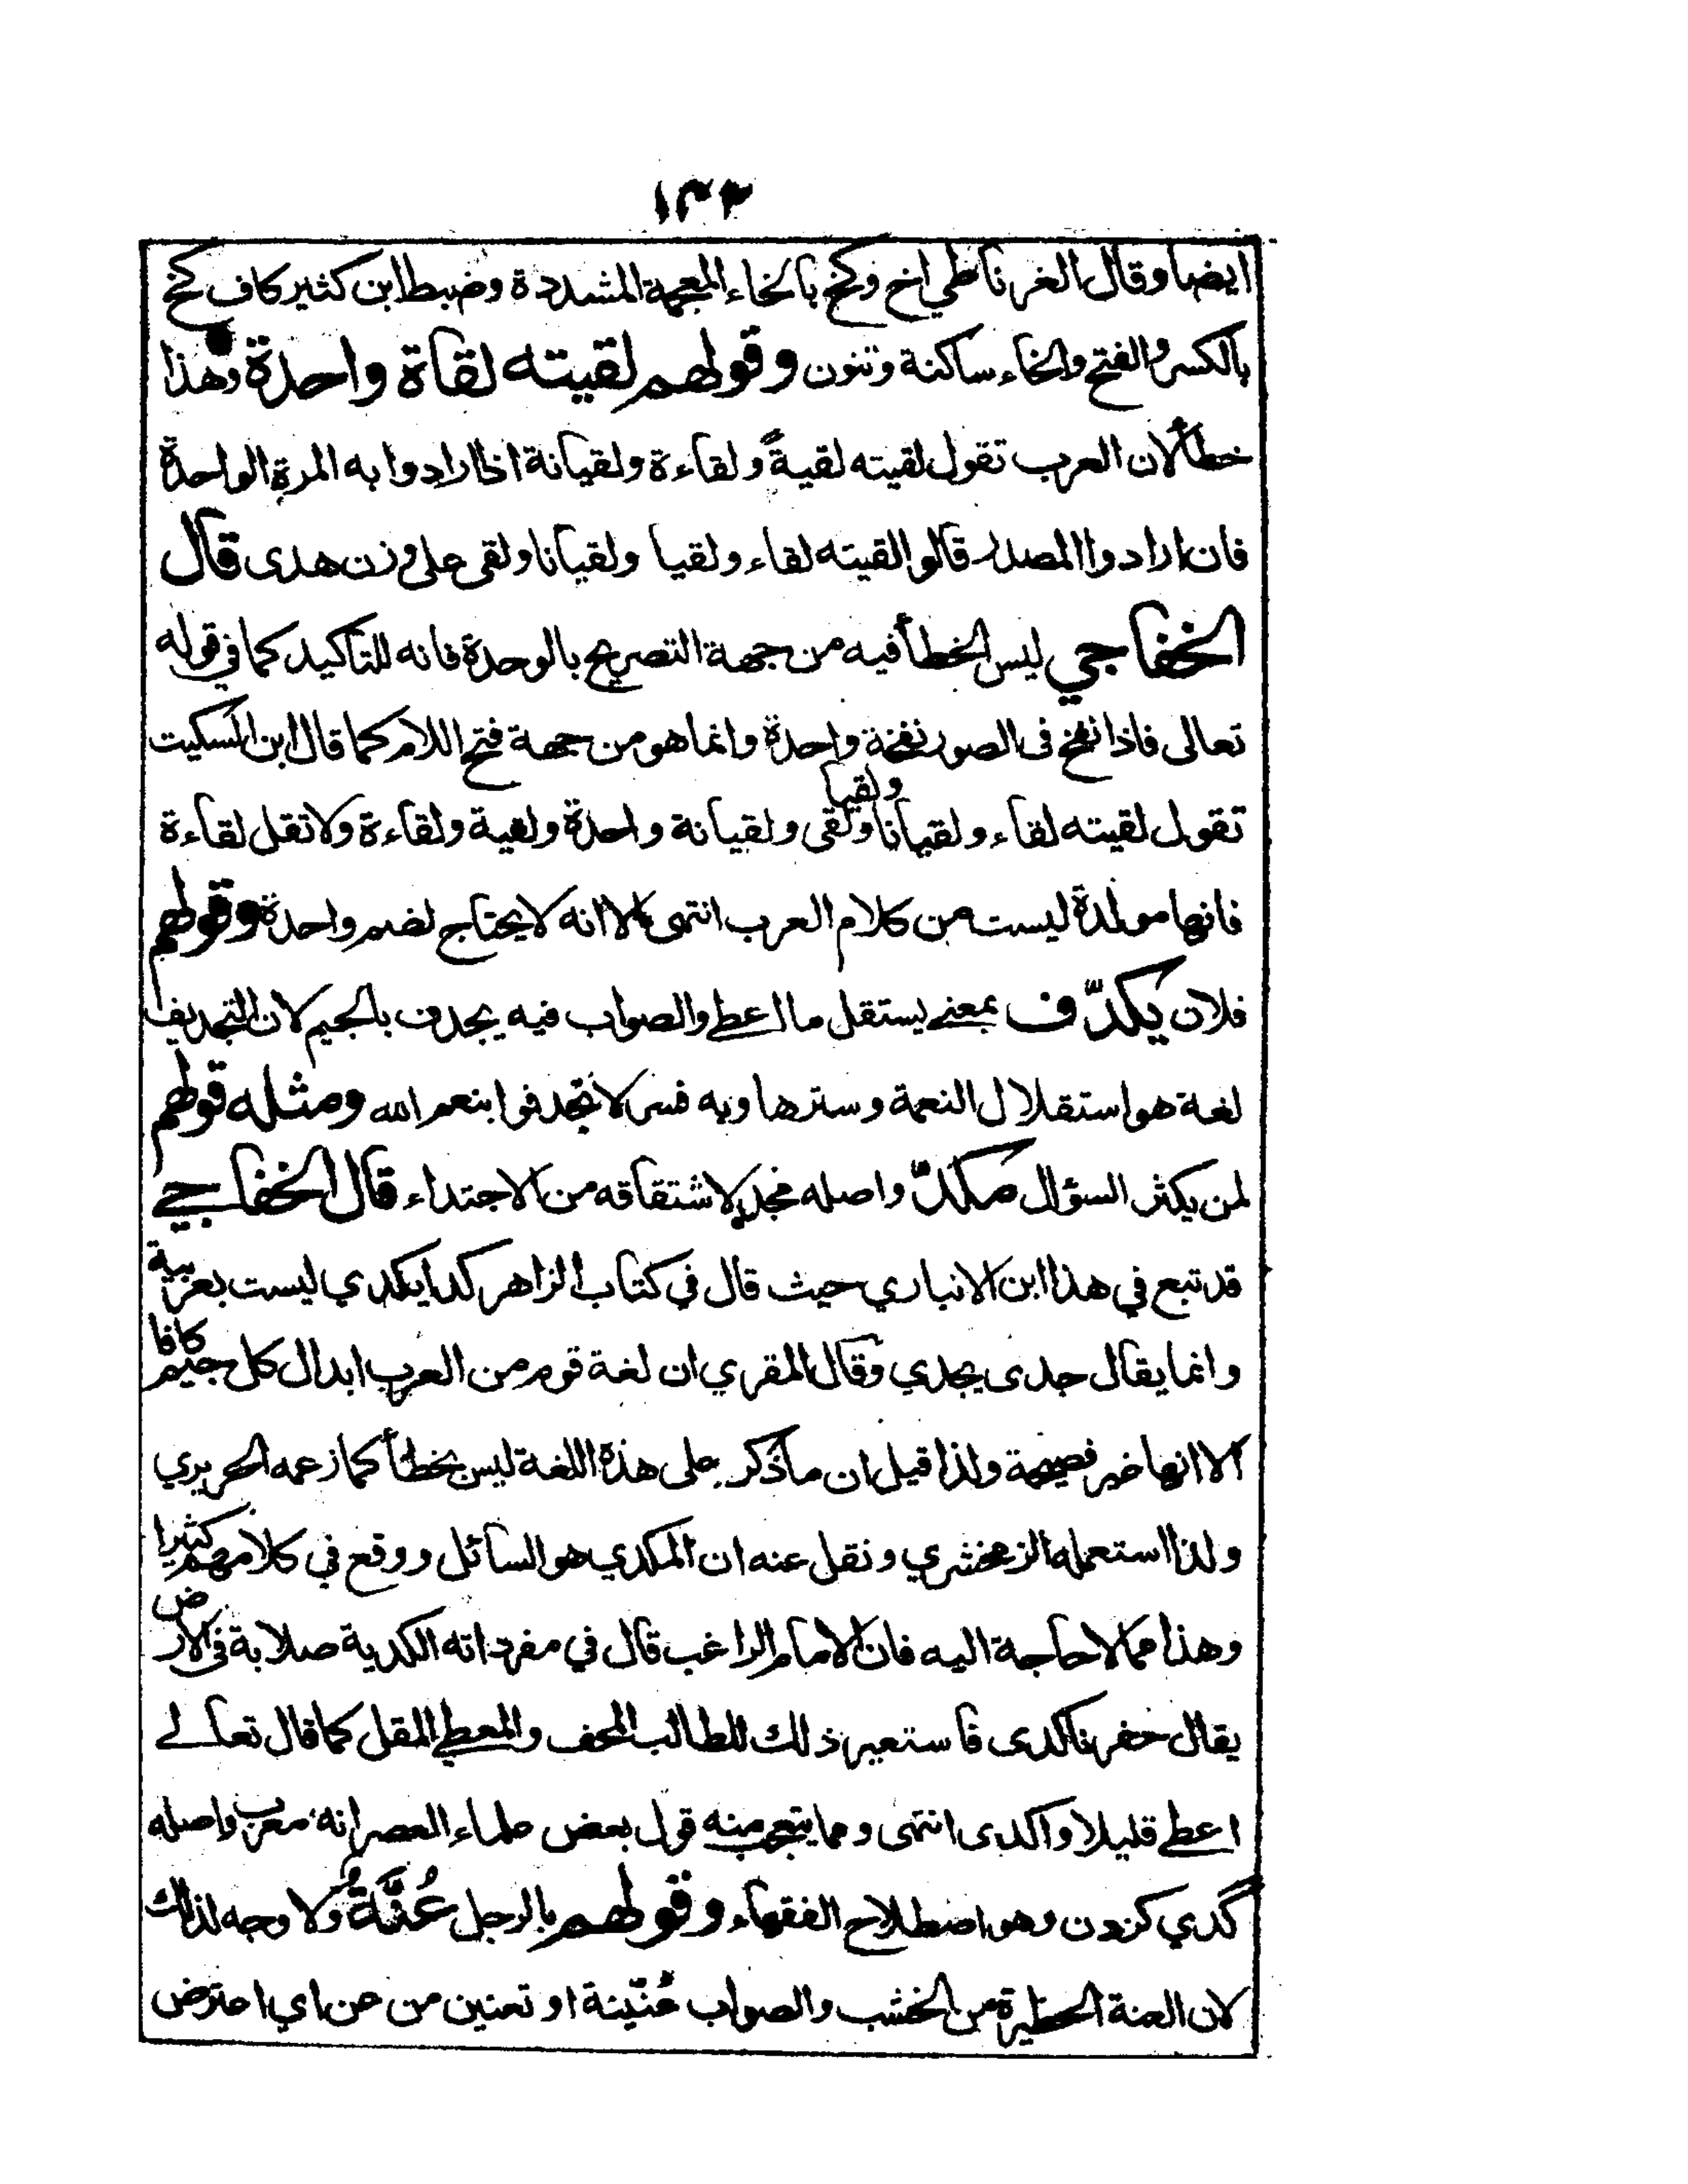 ١٣٢
ايضا وقال الغرناطي اخ وكخ بالخاء المعجمة المشددة وضبط ابن كثير كاف كخ
بالكسر والفتح والخاء ساكنة وتنون وقولهم لقيته لقاة واحدة وهذا
خطأ لان العرب تقول لقيته لقيةً ولقاءة ولقيانة اذا ارادوا به المرة الواحدة
فان ارادوا المصدر قالوا لقيته لقاء ولقيا ولقيانا ولقى على وزن هدى قال
الخفاجي ليس الخطأ فيه من جهة التصريح بالوحدة فانه للتاكيد كما في قوله
تعالى فاذا نفخ فى الصور نفخة واحدة وانما هو من جهة فتح اللام كما قال ابن السكيت
تقول لقيته لقاء ولقيانا ولقيا ولقى ولقيانة واحدة ولقية ولقاءة ولا تقل لقاءة
فانها مولدة ليست من كلام العرب انتهى الا انه لا يحتاج لضم واحدة وقولهم
فلان يكدّف بمعنى يستقل ما اعطى والصواب فيه يجدف بالجيم لان التجديف
لغة هو استقلال النعمة وسترها وبه فسر لا تجدفوا بنعم الله ومثله قولهم
لمن يكثر السؤال مكدّ واصله مجدٍ لاشتقاقه من الاجتداء قال الخفاجي
قد تبع في هذا ابن الانباري حيث قال في كتاب الزاهر كدا يكدي ليست بعربية
وانما يقال جدى يجدي وقال المقري ان لغة قوم من العرب ابدال كل جيم كافا
الا انها غير فصيحة ولذا قيل ان ما ذكر على هذة اللغة ليس بخطأ كما زعمه الحريري
ولذا استعمله الزمخشري ونقل عنه ان المكدي هو السائل ووقع في كلامهم كثيرا
وهذا مما لا حاجة اليه فان الامام الراغب قال في مفرداته الكدية صلابة فى الارض
يقال حفر فاكدى فاستعير ذلك للطالب المخف والمعطي المقل كما قال تعالى
اعطى قليلا واكدى انتهى ومما يتعجب منه قول بعض علماء العصر انه معرب واصله
گدي كزدن وهو اصطلاح الفقهاء وقولهم بالرجل عُنَّةٌ ولا وجه لذلك
لان العنة الحظيرة من الخشب والصواب عُنّينة او تعنين من عن اي اعترض